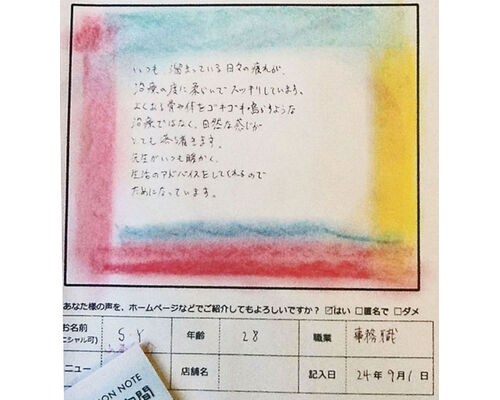 いつも、溜まっている日々の疲れが、
治療の度に柔いでスッキリしています。
よくある骨や体をゴキゴキ鳴らすような
治療ではなく、自然な感じが
とても落ち着きます。
先生がいつも暖かく、
生活のアドバイスをしてくれるので
ためになっています。
あなた様の声を、ホームページなどでご紹介してもよろしいですか？ ☑はい □匿名で □ダメ
お名前 S.Y 年齢 28 職業 事務職
ニシャル可)
ニュー 店舗名 記入日 24年9月1日
ON NOTE
間